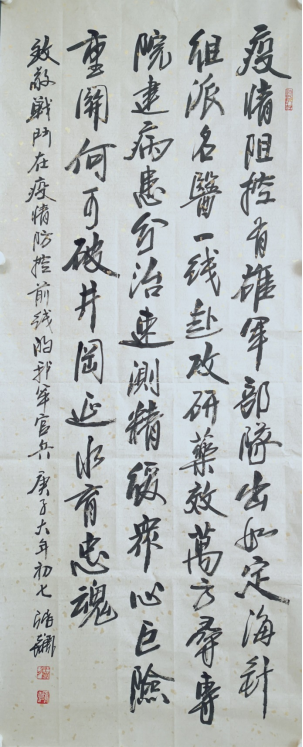 疫情阻控有雄军部隊出如定海針
组派名醫一线赴攻研藥效萬方尋專
院建病患分治速測精缓眾心巨險
重關何可破井岡延水育忠魂
致敬戰鬥在疫情防控前线的我军官兵 庚子大年初七